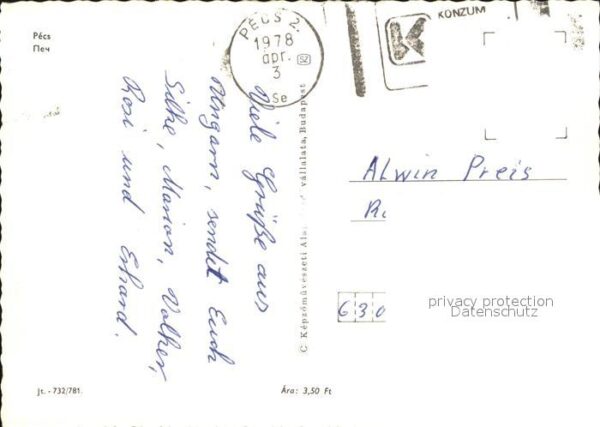 Pécs
Печ
PÉCS 2.
1978
ápr.
3
Se
52
KONZUM
Viele Grüße aus
Ungarn, sendet Euch
Silke, Marion, Volker,
Rosi und Erhard.
C Képzőművészeti Ala vállalata, Budapest
ALwin Preis
R
630
privacy protection
Datenschutz
Jt. - 732/781.
Ára: 3,50 Ft